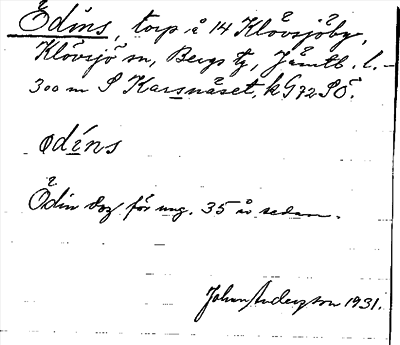 Ödins, torp å 14 Klövsjöby,
Klövsjö sn, Bergs tg, Jämtl. l. –
300 m S Karsnäset, kG 72 SÖ.
ødíns
Ödin dog för ung. 35 år sedan.
Johan Anderzson 1931.